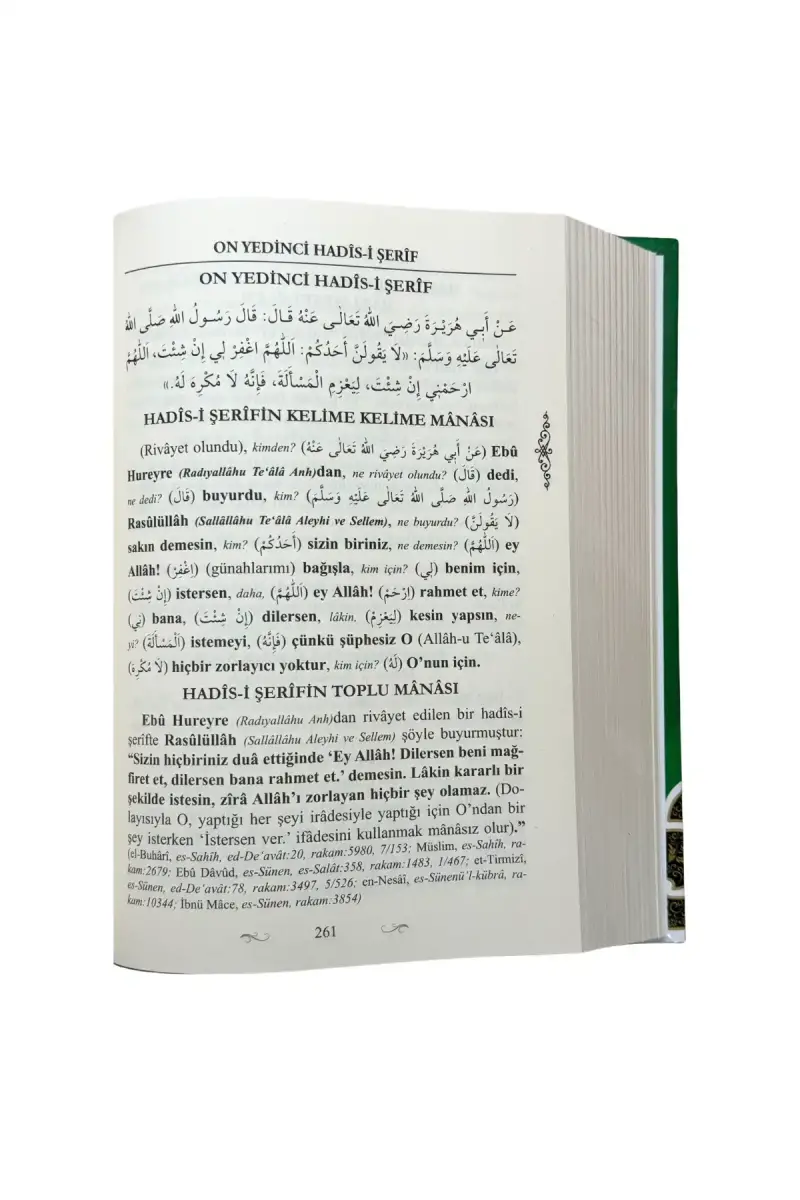 ON YEDİNCİ HADÎS-İ ŞERÎF
ON YEDİNCİ HADÎS-İ ŞERÎF
عَنْ أَبِي هُرَيْرَةَ رَضِيَ اللهُ تَعَالَى عَنْهُ قَالَ: قَالَ رَسُولُ اللهِ صَلَّى اللهُ
تَعَالَى عَلَيْهِ وَسَلَّمَ: «لَا يَقُولَنَّ أَحَدُكُمْ: اَللّٰهُمَّ اغْفِرْ لِي إِنْ شِئْتَ، اَللّٰهُمَّ
ارْحَمْنِي إِنْ شِئْتَ، لِيَعْزِمِ الْمَسْأَلَةَ، فَإِنَّهُ لَا مُكْرِهَ لَهُ.»
HADÎS-İ ŞERÎFİN KELİME KELİME MÂNÂSI
(Rivâyet olundu), kimden? (عَنْ أَبِي هُرَيْرَةَ رَضِيَ اللهُ تَعَالَى عَنْهُ) Ebû
Hureyre (Radıyallâhu Te‘âlâ Anh)dan, ne rivâyet olundu? (قَالَ) dedi,
ne dedi? (قَالَ) buyurdu, kim? (رَسُولُ اللهِ صَلَّى اللهُ تَعَالَى عَلَيْهِ وَسَلَّمَ)
Rasûlüllâh (Sallâllâhu Te‘âlâ Aleyhi ve Sellem), ne buyurdu? (لَا يَقُولَنَّ)
sakın demesin, kim? (أَحَدُكُمْ) sizin biriniz, ne demesin? (اَللّٰهُمَّ) ey
Allâh! (اِغْفِرْ) (günahlarımı) bağışla, kim için? (لِي) benim için,
(إِنْ شِئْتَ) istersen, daha, (اَللّٰهُمَّ) ey Allâh! (اِرْحَمْ) rahmet et, kime?
(نِي) bana, (إِنْ شِئْتَ) dilersen, lâkin. (لِيَعْزِمِ) kesin yapsın, ne-
yi? (اَلْمَسْأَلَةَ) istemeyi, (فَإِنَّهُ) çünkü şüphesiz O (Allâh-u Te‘âlâ),
(لَا مُكْرِهَ) hiçbir zorlayıcı yoktur, kim için? (لَهُ) O’nun için.
HADÎS-İ ŞERÎFİN TOPLU MÂNÂSI
Ebû Hureyre (Radıyallâhu Anh)dan rivâyet edilen bir hadîs-i
şerîfte Rasûlüllâh (Sallâllâhu Aleyhi ve Sellem) şöyle buyurmuştur:
“Sizin hiçbiriniz duâ ettiğinde ‘Ey Allâh! Dilersen beni mağ-
firet et, dilersen bana rahmet et.’ demesin. Lâkin kararlı bir
şekilde istesin, zîrâ Allâh’ı zorlayan hiçbir şey olamaz. (Do-
layısıyla O, yaptığı her şeyi irâdesiyle yaptığı için O’ndan bir
şey isterken ‘İstersen ver.’ ifâdesini kullanmak mânâsız olur).”
(el-Buhârî, es-Sahîh, ed-De‘avât:20, rakam:5980, 7/153; Müslim, es-Sahîh, ra-
kam:2679; Ebû Dâvûd, es-Sünen, es-Salât:358, rakam:1483, 1/467; et-Tirmizî,
es-Sünen, ed-De‘avât:78, rakam:3497, 5/526; en-Nesâî, es-Sünenü’l-kübrâ, ra-
kam:10344; İbnü Mâce, es-Sünen, rakam:3854)
261